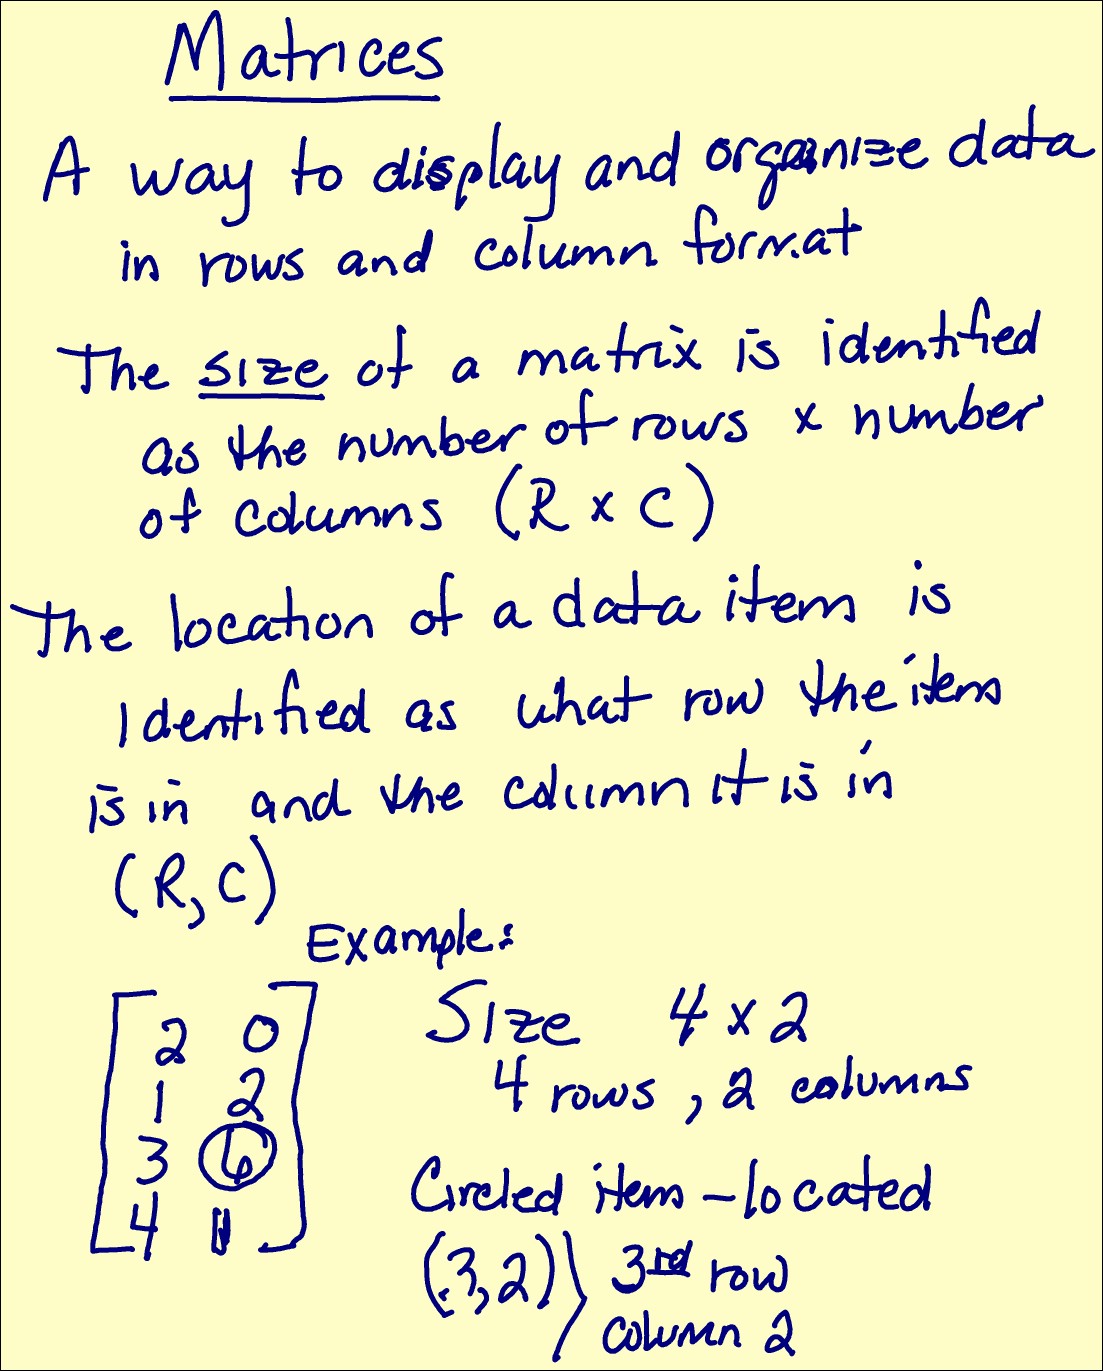 Matrices
A way to display and organize data
in rows and column format
The size of a matrix is identified
as the number of rows x number
of columns (R x C)
The location of a data item is
Identified as what row the item
is in and the column it is in
(R, C)
Example:
[2 0
1 2
3 6
4 ]
Size 4 x 2
4 rows, 2 columns
Circled item - located
(3,2) } 3rd row
column 2